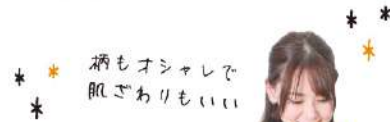 柄もオシャレで
肌ざわりもいい